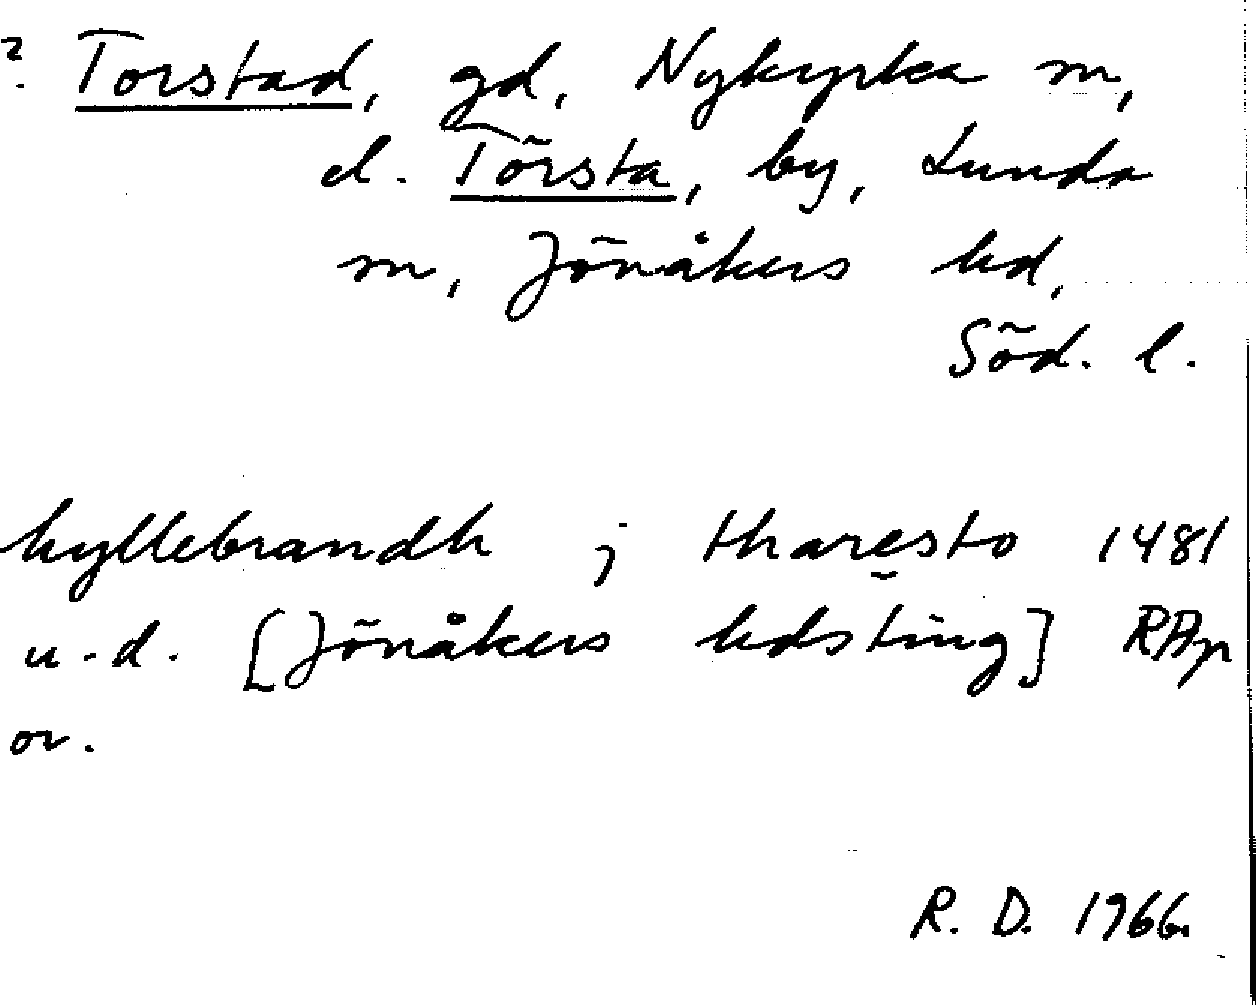 ? Torstad, gd, Nykyrka sn,
el. Törsta, by, Lunda
sn, Jönåkers hd,
Söd. l.
hyllebrandh j tharesto 1481
u.d. [Jönåkers hdsting] RAp
or.
R. D. 1966